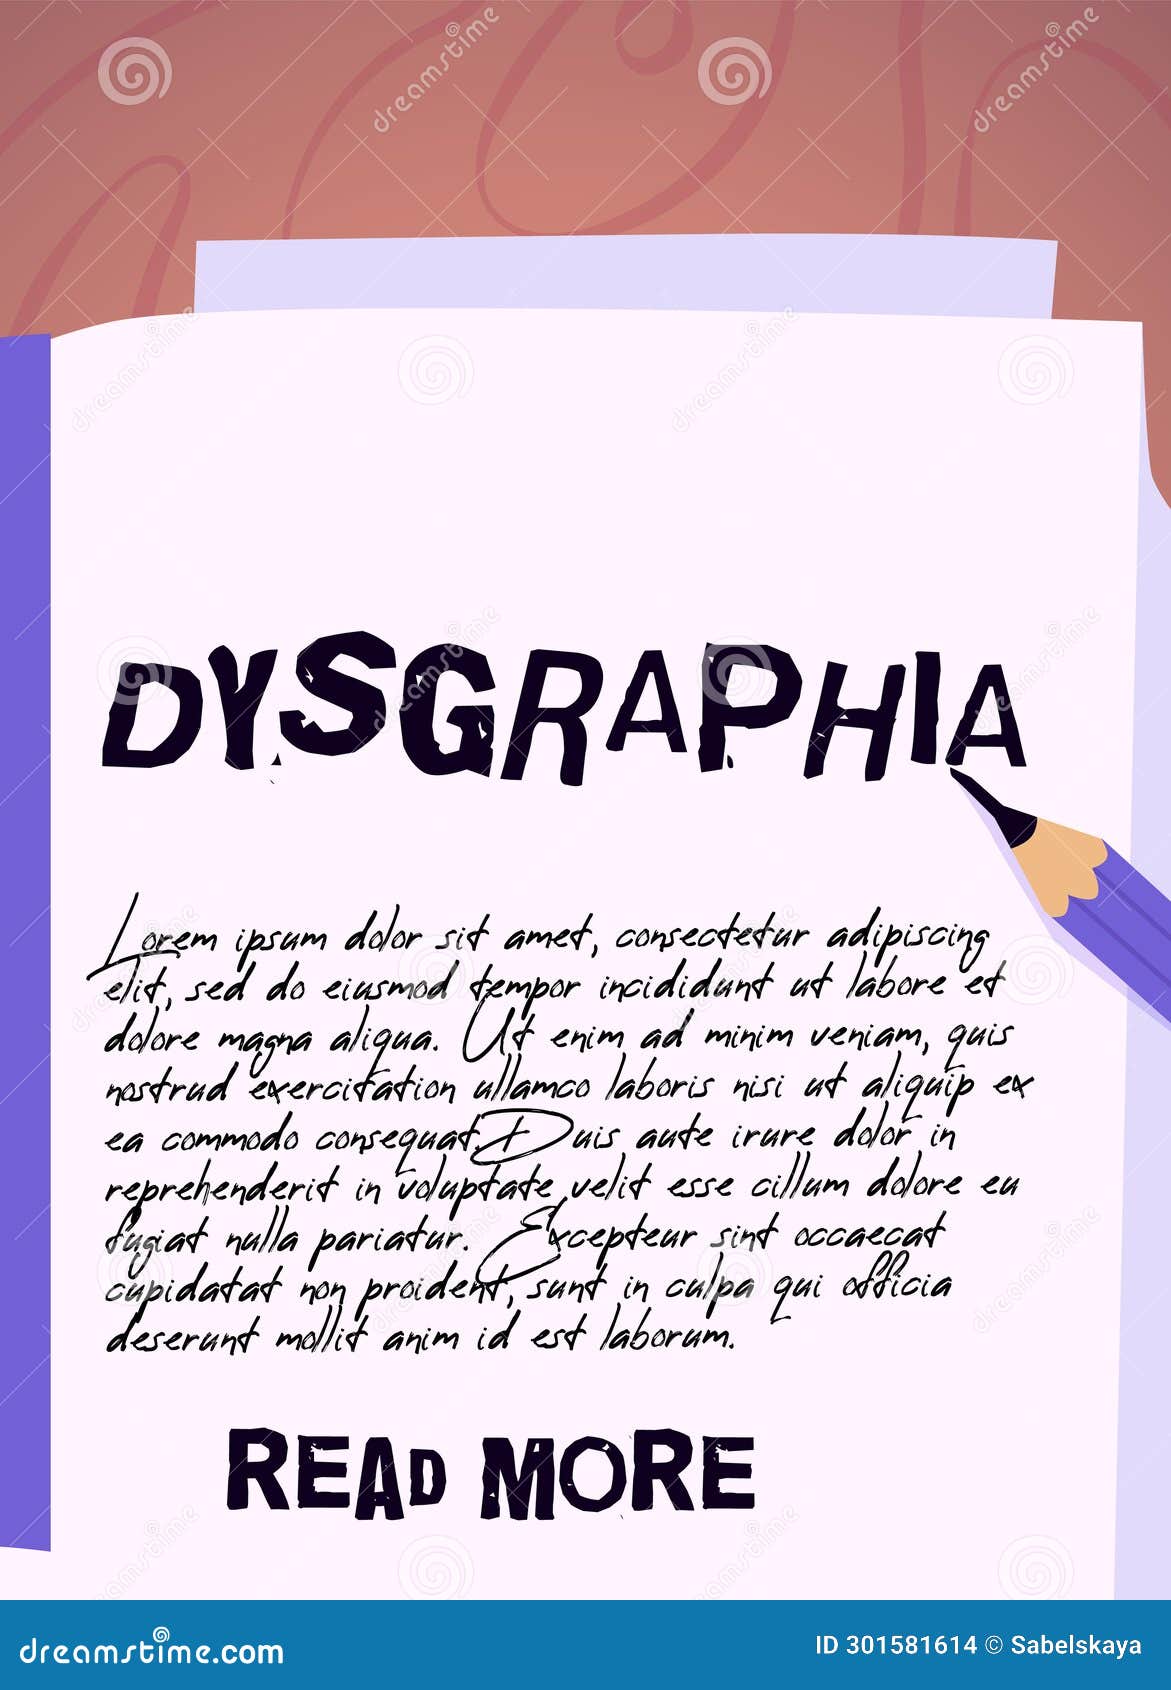 DYSGRAPHIA
Lorem ipsum dolor sit amet, consectetur adipiscing
elit, sed do eiusmod tempor incididunt ut labore et
dolore magna aliqua. Ut enim ad minim veniam, quis
nostrud exercitation ullamco laboris nisi ut aliquip ex
ea commodo consequat. Duis aute irure dolor in
reprehenderit in voluptate velit esse cillum dolore eu
fugiat nulla pariatur. Excepteur sint occaecat
cupidatat non proident, sunt in culpa qui officia
deserunt mollit anim id est laborum.
READ MORE
dreamstime.com
ID 301581614 © Sabelskaya